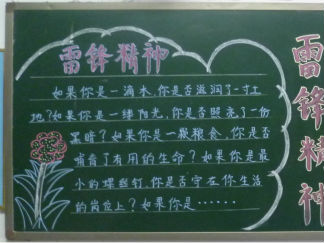 雷锋精神
如果你是一滴水,你是否滋润了一寸土
地?如果你是一缕阳光,你是否照亮了一份
黑暗?如果你是一颗粮食,你是否
哺育了有用的生命?如果你是最
小的螺丝钉,你是否守在你生活
的岗位上?如果你是……
雷锋精神